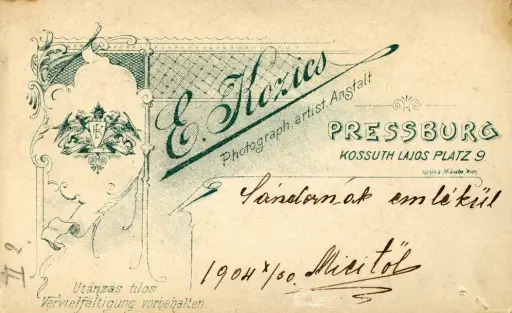 E. Kozics
Photograph. artist. Anstalt
PRESSBURG
KOSSUTH LAJOS PLATZ 9
Sándornak emlékül
1904 X/30. Micitől
II 2.
Utánzás tilos
Vervielfältigung vorbehalten.